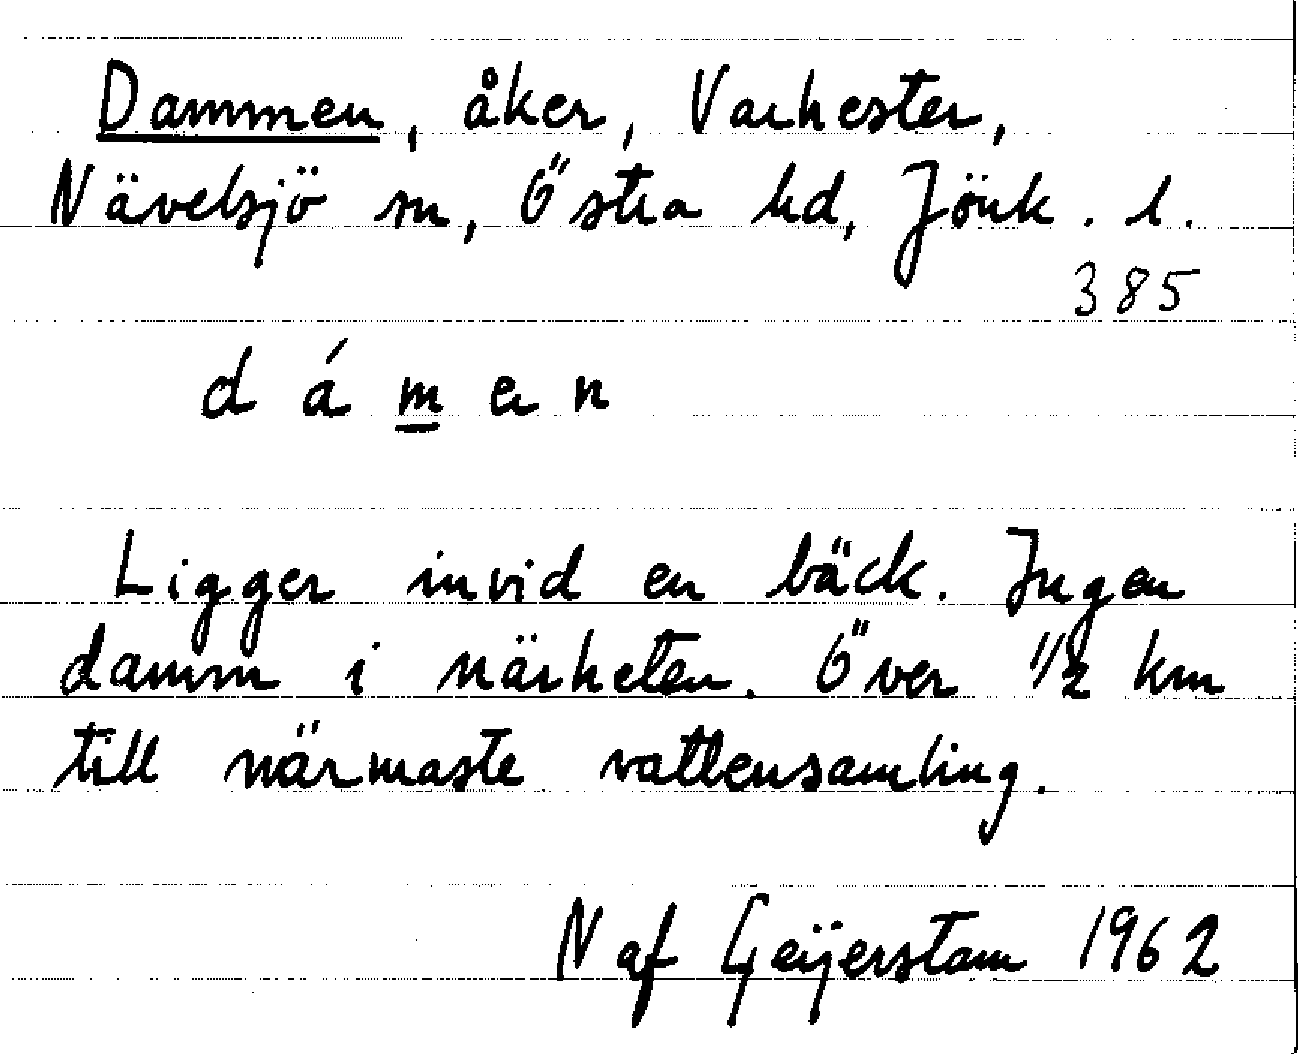 Dammen, åker, Varhester,
Nävelsjö sn, Östra hd, Jönk. l.
385
d á m e n
Ligger invid en bäck. Ingen
damm i närheten. Över 1/2 km
till närmaste vattensamling.
N af Geijerstam 1962